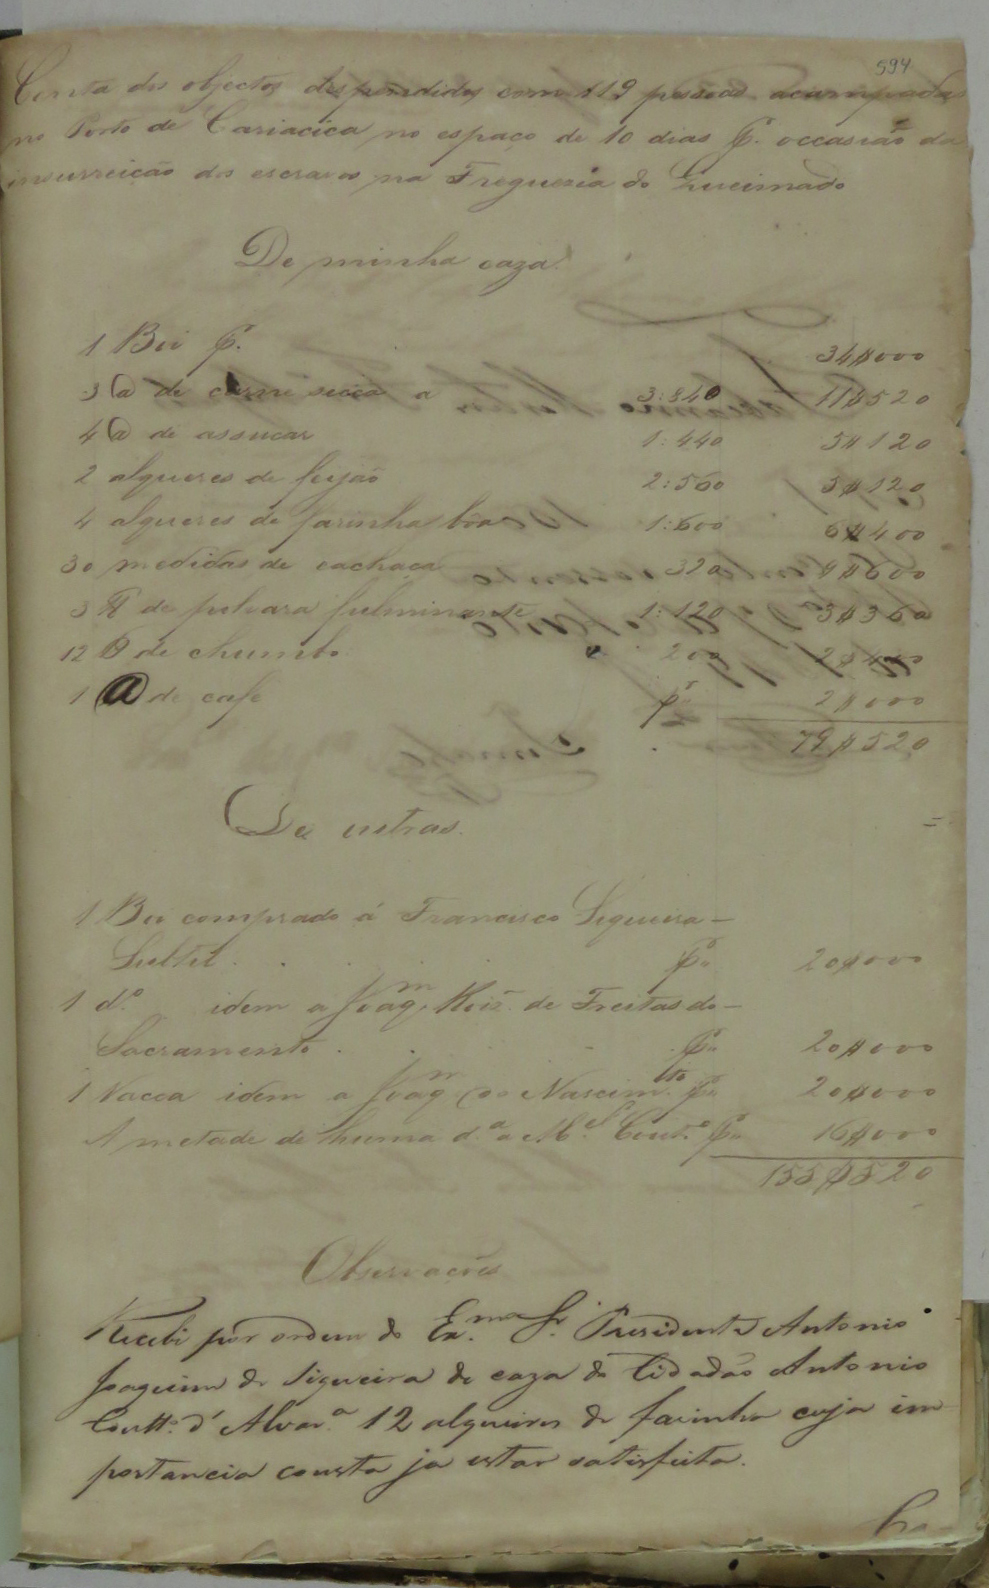 594
Conta dos objectos despendidos com 119 pessoas acampadas
no Porto de Cariacica no espaço de 10 dias p.r occasião da
insurreição dos escravos na Freguezia do Queimado
De minha caza
1 Boi p.r 34$000
3 @ de carne secca a 3:840 11$520
4 @ de assucar 1:440 5$120
2 alqueres de feijão 2:560 5$120
4 alqueres de farinha bôa 1:600 6$400
30 medidas de cachaça 320 9$600
3 ℔ de pulvara fulminante 1:120 3$360
12 ℔ de chumbo 200 2$400
1 @ de cafe p.r 2$000
79$520
De outras
1 Boi comprado á Francisco Siqueira –
Suttil . . . . p.r 20$000
1 d.º idem a Joaq.m Roiz de Freitas do –
Sacramento . . . p.r 20$000
1 Vacca idem a Joaq.m do Nascim.to p.r 20$000
A metade de huma d.a a M.el Cout.º p.r 16$000
155$520
Observações
Recebi por ordem do Ex.mo Sr. Presidente Antonio
Joaquim de Siqueira de caza do Cidadão Antonio
Coutt.º d'Alvar.a 12 alqueires de farinha cuja im-
portancia consta ja estar satisfeita.